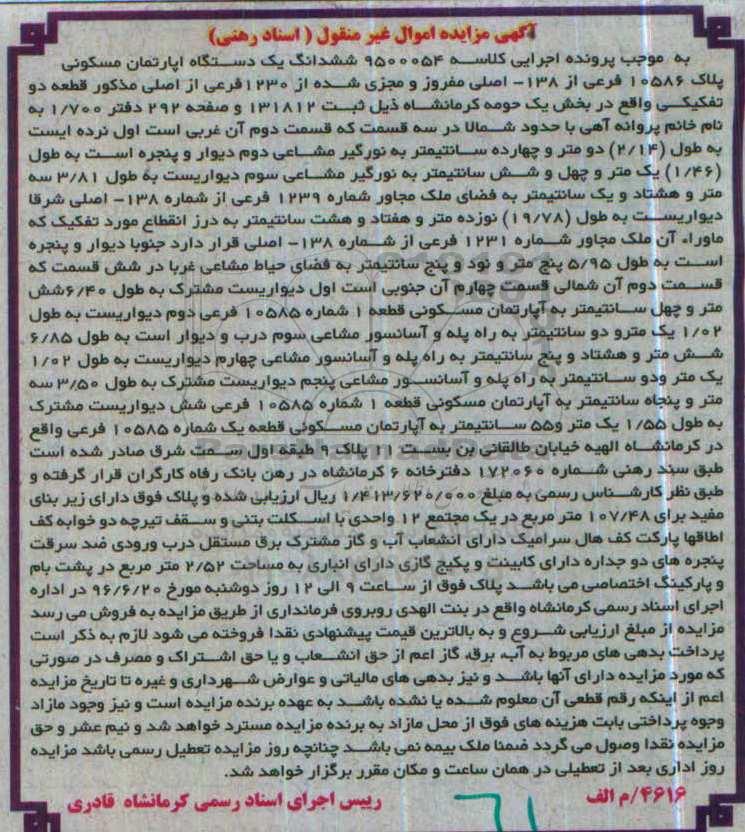 آگهی مزایده اموال غیر منقول ( اسناد رهنی)
به موجب پرونده اجرایی کلاسه ۹۵۰۰۰۵۴ ششدانگ یک دستگاه اپارتمان مسکونی
پلاک ۱۰۵۸۶ فرعی از ۱۳۸- اصلی مفروز و مجزی شده از ۱۲۳۰فرعی از اصلی مذکور قطعه دو
تفکیکی واقع در بخش یک حومه کرمانشاه ذیل ثبت ۱۳۱۸۱۲ و صفحه ۲۹۲ دفتر ۱/۷۰۰ به
نام خانم پروانه آهی با حدود شمالا در سه قسمت که قسمت دوم آن غربی است اول نرده ایست
به طول (۲/۱۴) دو متر و چهارده سانتیمتر به نورگیر مشاعی دوم دیوار و پنجره است به طول
(۱/۴۶) یک متر و چهل و شش سانتیمتر به نورگیر مشاعی سوم دیواریست به طول ۳/۸۱ سه
متر و هشتاد و یک سانتیمتر به فضای ملک مجاور شماره ۱۲۳۹ فرعی از شماره ۱۳۸- اصلی شرقا
دیواریست به طول (۱۹/۷۸) نوزده متر و هفتاد و هشت سانتیمتر به درز انقطاع مورد تفکیک که
ماوراء آن ملک مجاور شماره ۱۲۳۱ فرعی از شماره ۱۳۸- اصلی قرار دارد جنوبا دیوار و پنجره
است به طول ۵/۹۵ پنج متر و نود و پنج سانتیمتر به فضای حیاط مشاعی غربا در شش قسمت که
قسمت دوم آن شمالی قسمت چهارم آن جنوبی است اول دیواریست مشترک به طول ۶/۴۰شش
متر و چهل سانتیمتر به آپارتمان مسکونی قطعه ۱ شماره ۱۰۵۸۵ فرعی دوم دیواریست به طول
۱/۰۲ یک مترو دو سانتیمتر به راه پله و آسانسور مشاعی سوم درب و دیوار است به طول ۶/۸۵
شش متر و هشتاد و پنج سانتیمتر به راه پله و آسانسور مشاعی چهارم دیواریست به طول ۱/۰۲
یک متر ودو سانتیمتر به راه پله و آسانسور مشاعی پنجم دیواریست مشترک به طول ۳/۵۰ سه
متر و پنجاه سانتیمتر به آپارتمان مسکونی قطعه ۱ شماره ۱۰۵۸۵ فرعی شش دیواریست مشترک
به طول ۱/۵۵ یک متر و۵۵ سانتیمتر به آپارتمان مسکونی قطعه یک شماره ۱۰۵۸۵ فرعی واقع
در کرمانشاه الهیه خیابان طالقانی بن بست ۲۱ پلاک ۹ طبقه اول سمت شرق صادر شده است
طبق سند رهنی شماره ۱۷۲۰۶۰ دفترخانه ۶ کرمانشاه در رهن بانک رفاه کارگران قرار گرفته و
طبق نظر کارشناس رسمی به مبلغ ۱/۴۱۳/۶۲۰/۰۰۰ ریال ارزیابی شده و پلاک فوق دارای زیر بنای
مفید برای ۱۰۷/۴۸ متر مربع در یک مجتمع ۱۲ واحدی با اسکلت بتنی و سقف تیرچه دو خوابه کف
اطاقها پارکت کف هال سرامیک دارای انشعاب آب و گاز مشترک برق مستقل درب ورودی ضد سرقت
پنجره های دو جداره دارای کابینت و پکیج گازی دارای انباری به مساحت ۲/۵۲ متر مربع در پشت بام
و پارکینگ اختصاصی می باشد پلاک فوق از ساعت ۹ الی ۱۲ روز دوشنبه مورخ ۹۶/۶/۲۰ در اداره
اجرای اسناد رسمی کرمانشاه واقع در بنت الهدی روبروی فرمانداری از طریق مزایده به فروش می رسد
مزایده از مبلغ ارزیابی شروع و به بالاترین قیمت پیشنهادی نقدا فروخته می شود لازم به ذکر است
پرداخت بدهی های مربوط به آب، برق، گاز اعم از حق انشعاب و یا حق اشتراک و مصرف در صورتی
که مورد مزایده دارای آنها باشد و نیز بدهی های مالیاتی و عوارض شهرداری و غیره تا تاریخ مزایده
اعم از اینکه رقم قطعی آن معلوم شده یا نشده باشد به عهده برنده مزایده است و نیز وجود مازاد
وجوه پرداختی بابت هزینه های فوق از محل مازاد به برنده مزایده مسترد خواهد شد و نیم عشر و حق
مزایده نقدا وصول می گردد ضمنا ملک بیمه نمی باشد چنانچه روز مزایده تعطیل رسمی باشد مزایده
روز اداری بعد از تعطیلی در همان ساعت و مکان مقرر برگزار خواهد شد.
۴۶۱۶/م الف
رییس اجرای اسناد رسمی کرمانشاه قادری
۶۱